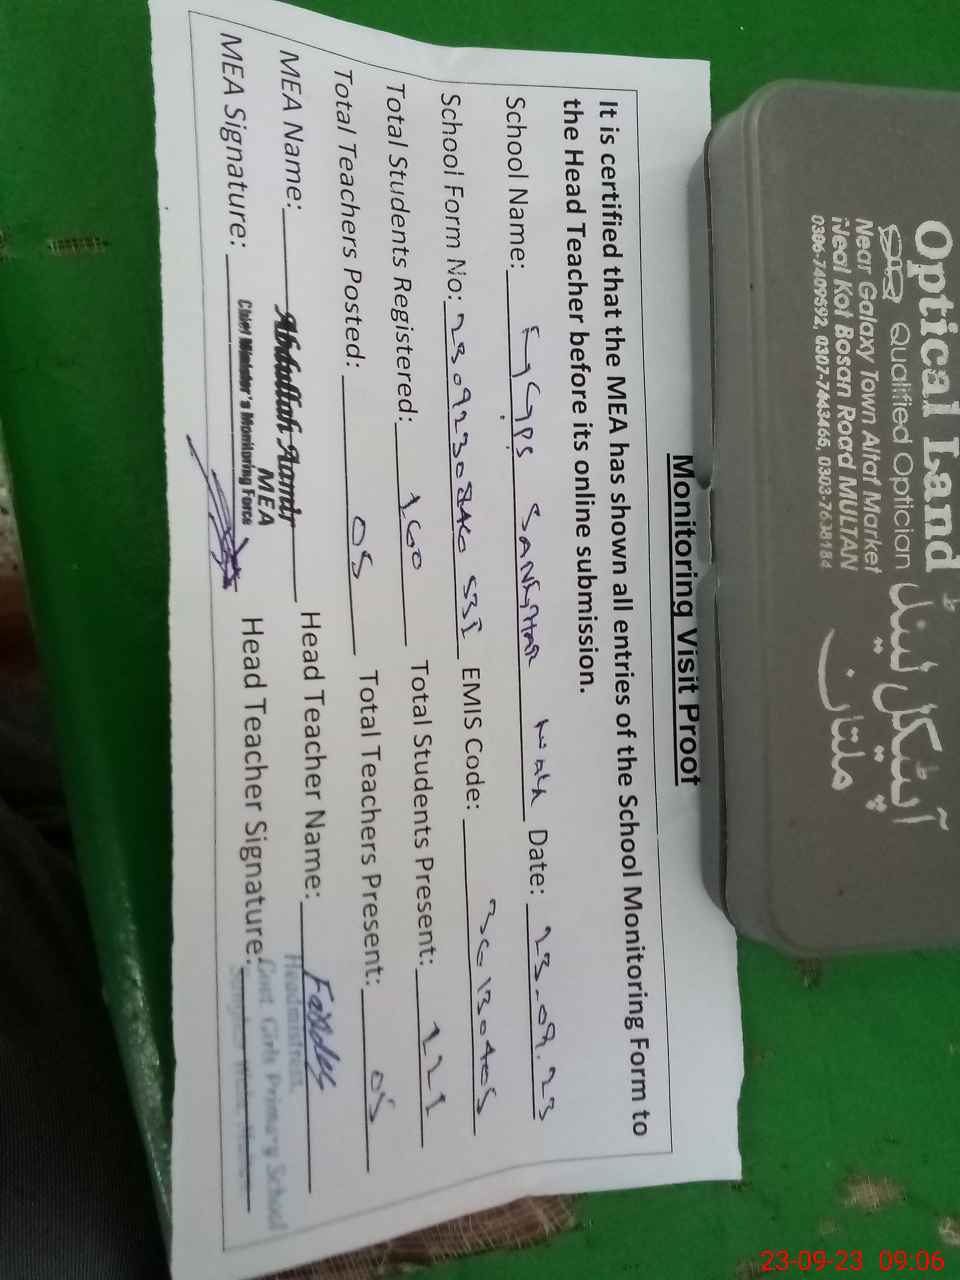 Monitoring Visit Proof
It is certified that the MEA has shown all entries of the School Monitoring Form to
the Head Teacher before its online submission.
School Name: GGPS SANGHAR Wala Date: 23-09.23
School Form No: EMIS Code:
Total Students Registered: 160 Total Students Present: 121
Total Teachers Posted: 05 Total Teachers Present: 05
MEA Name: Abdullah Aamir Head Teacher Name:
MEA
MEA Signature: Chief Minister's Monitoring Force Head Teacher Signature:
Headmistress,
Govt. Girls Primary School
Optical Land آپٹیکل لینڈ
Qualified Optician ملتان
Near Galaxy Town Altaf Market
Neal Kot Bosan Road MULTAN
0306-7409592, 0307-7443465, 0303-7638184
23-09-23 09:06